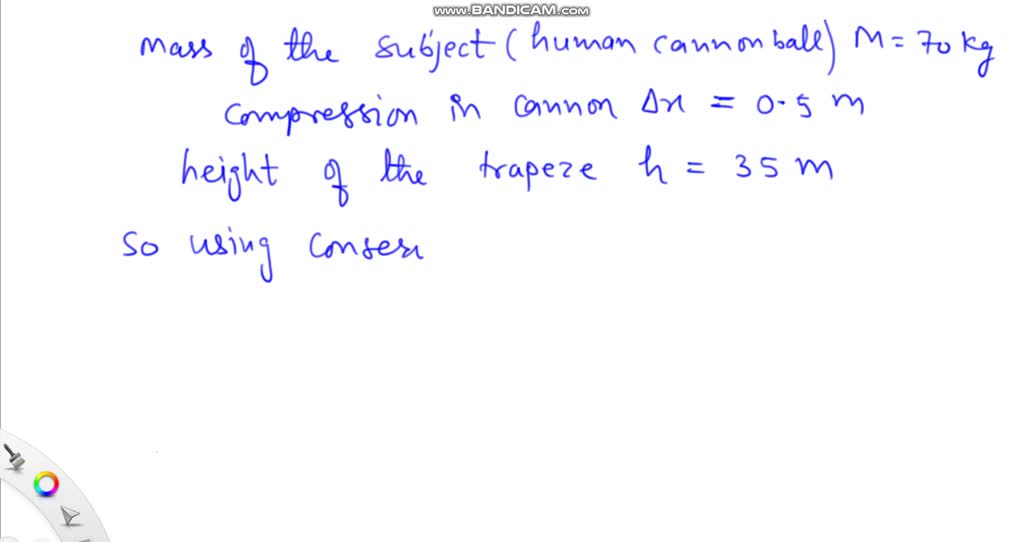 www.BANDICAM.com
Mass of the subject (human cannonball) M = 70 kg
Compression in cannon Δx = 0.5 m
height of the trapeze h = 35 m
So using conser